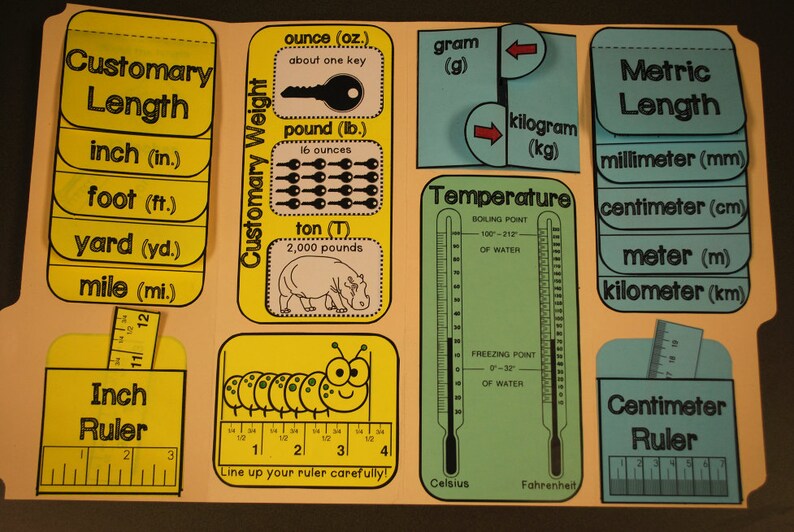 Customary
Length
inch (in.)
foot (ft.)
yard (yd.)
mile (mi.)
12
11
3/4
1/2
Inch
Ruler
1 2 3
Customary Weight
ounce (oz.)
about one key
pound (lb.)
16 ounces
ton (T)
2,000 pounds
1/4 3/4 1/4 3/4 1/4 3/4 1/4 3/4
1/2 1/2 1/2 1/2
1 2 3 4
Line up your ruler carefully!
gram
(g)
kilogram
(kg)
Temperature
BOILING POINT
100°-212°
OF WATER
FREEZING POINT
0°-32°
OF WATER
Celsius
Fahrenheit
Metric
Length
millimeter (mm)
centimeter (cm)
meter (m)
kilometer (km)
19
18
17
Centimeter
Ruler
1 2 3 4 5 6 7